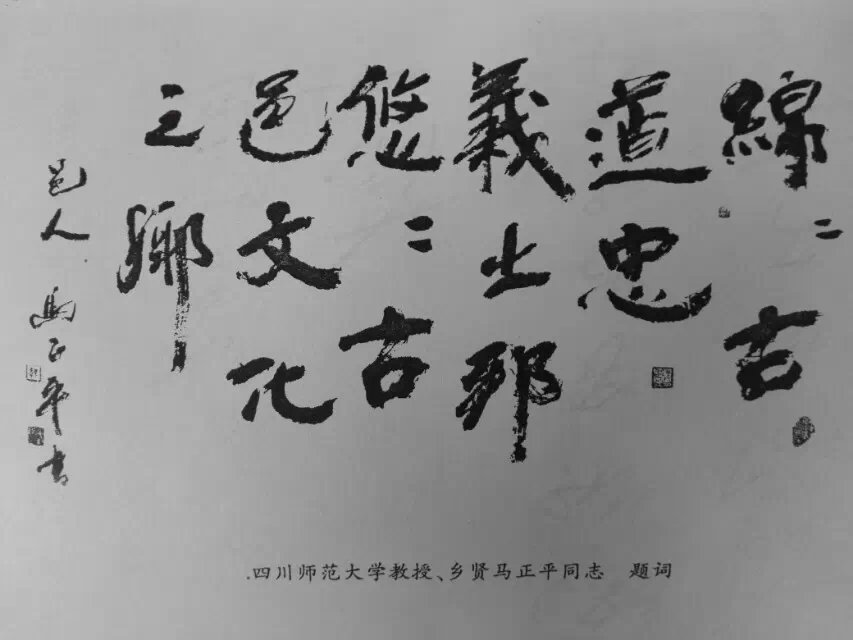 綿〻古
道忠
義之邦
悠〻古
邑文化
之鄉
邑人 馬正平书
四川师范大学教授、乡贤马正平同志 题词